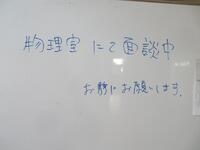 物理室 にて面談中
お静にお願いします。